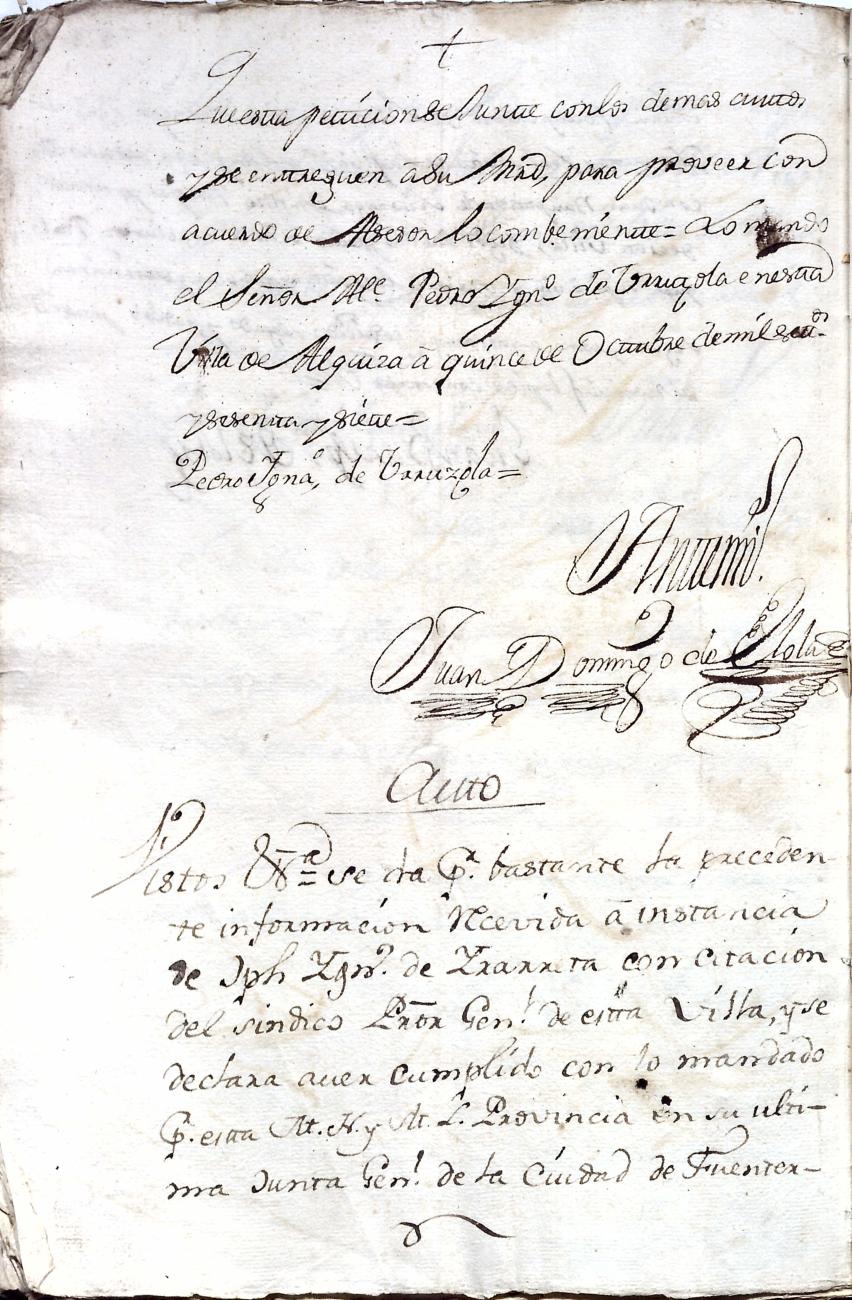 Que esta peticion se Junte con los demas autos
y se entreguen â su Mrd, para proveer con
acuerdo de Asesor lo combeniente = Lo mando
el Señor Alc.e Pedro Ygn.o de Urruzola en esta
Villa de Alquiza â quince de Octubre de mil setez.os
y sesenta y siete =
Pedro Ygna.o de Urruzola =
Antemi.
Juan Domingo de Elola
Auto
Vistos &.a = se da P.r bastante la preceden-
te informacion Rcevida â instancia
de Jph Ygn.o de Yrarreta con citacion
del sindico Pror Gen.l de esta Villa, y se
declara aver cumplido con lo mandado
P.r esta M. N. y M. L. Provincia en su ulti-
ma Junta Gen.l de la Ciudad de Fuenter-